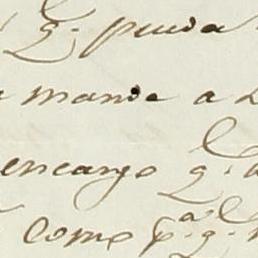 q.e pueda
mande a
encargo q.e
como p.a q.e